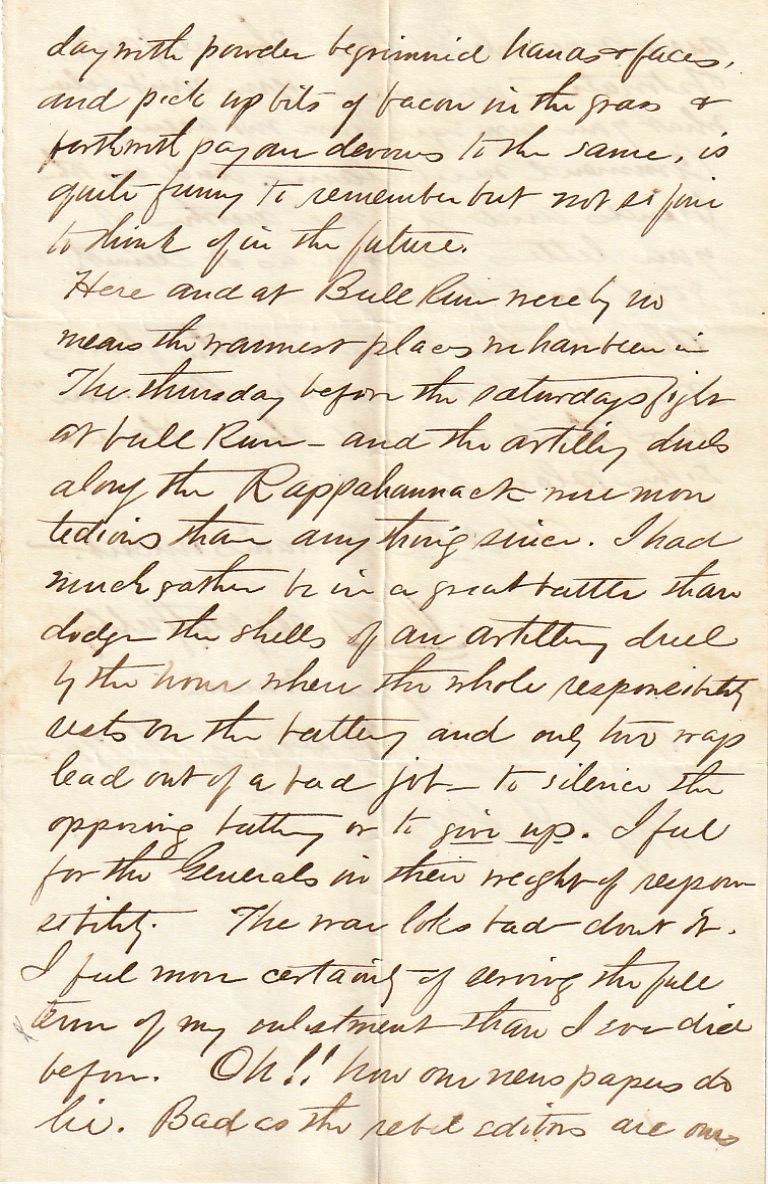 day with powder begrimmid hands & faces,
and pick up bits of bacon in the grass &
forthwith pay our devours to the same, is
quite funny to remember but not so fine
to think of in the future.
Here and at Bull Run were by no
means the warmest places we have been in
The thursday before the saturdays fight
at bull Run – and the artillery duels
along the Rappahannack were more
tedious than any thing since. I had
much rather be in a great battle than
dodge the shells of an artillery duel
by the hour where the whole responsibility
rests on the battery and only two ways
lead out of a bad job – to silence the
opposing battery or to give up. I feel
for the Generals in their weight of respon
sibility. The war loks bad dont it.
I feel more certainty of serving the full
term of my enlistment than I ever did
before. Oh!! how our news papers do
lie. Bad as the rebel editors are ours